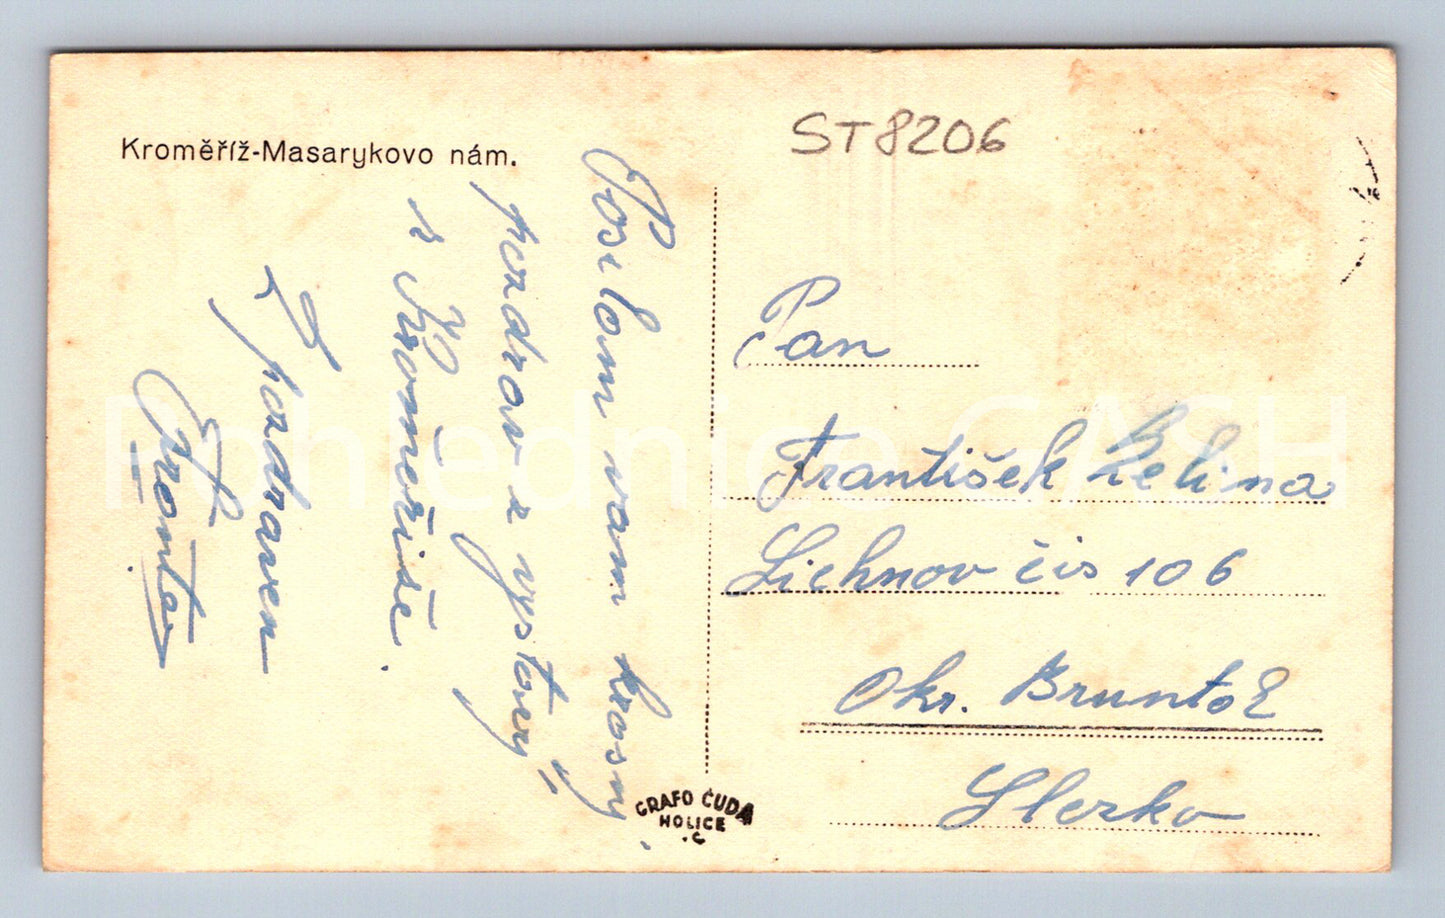 Kroměříž-Masarykovo nám.
ST8206
Posilam vam krasny
pozdrav z vystavy
v Kromeřiše.
Z pozdravem
Pan
František Zelina
Lichnov čis 106
Okr. Bruntál
Slezko
GRAFO ČUDA
HOLICE
.C
Pohlednice GASH